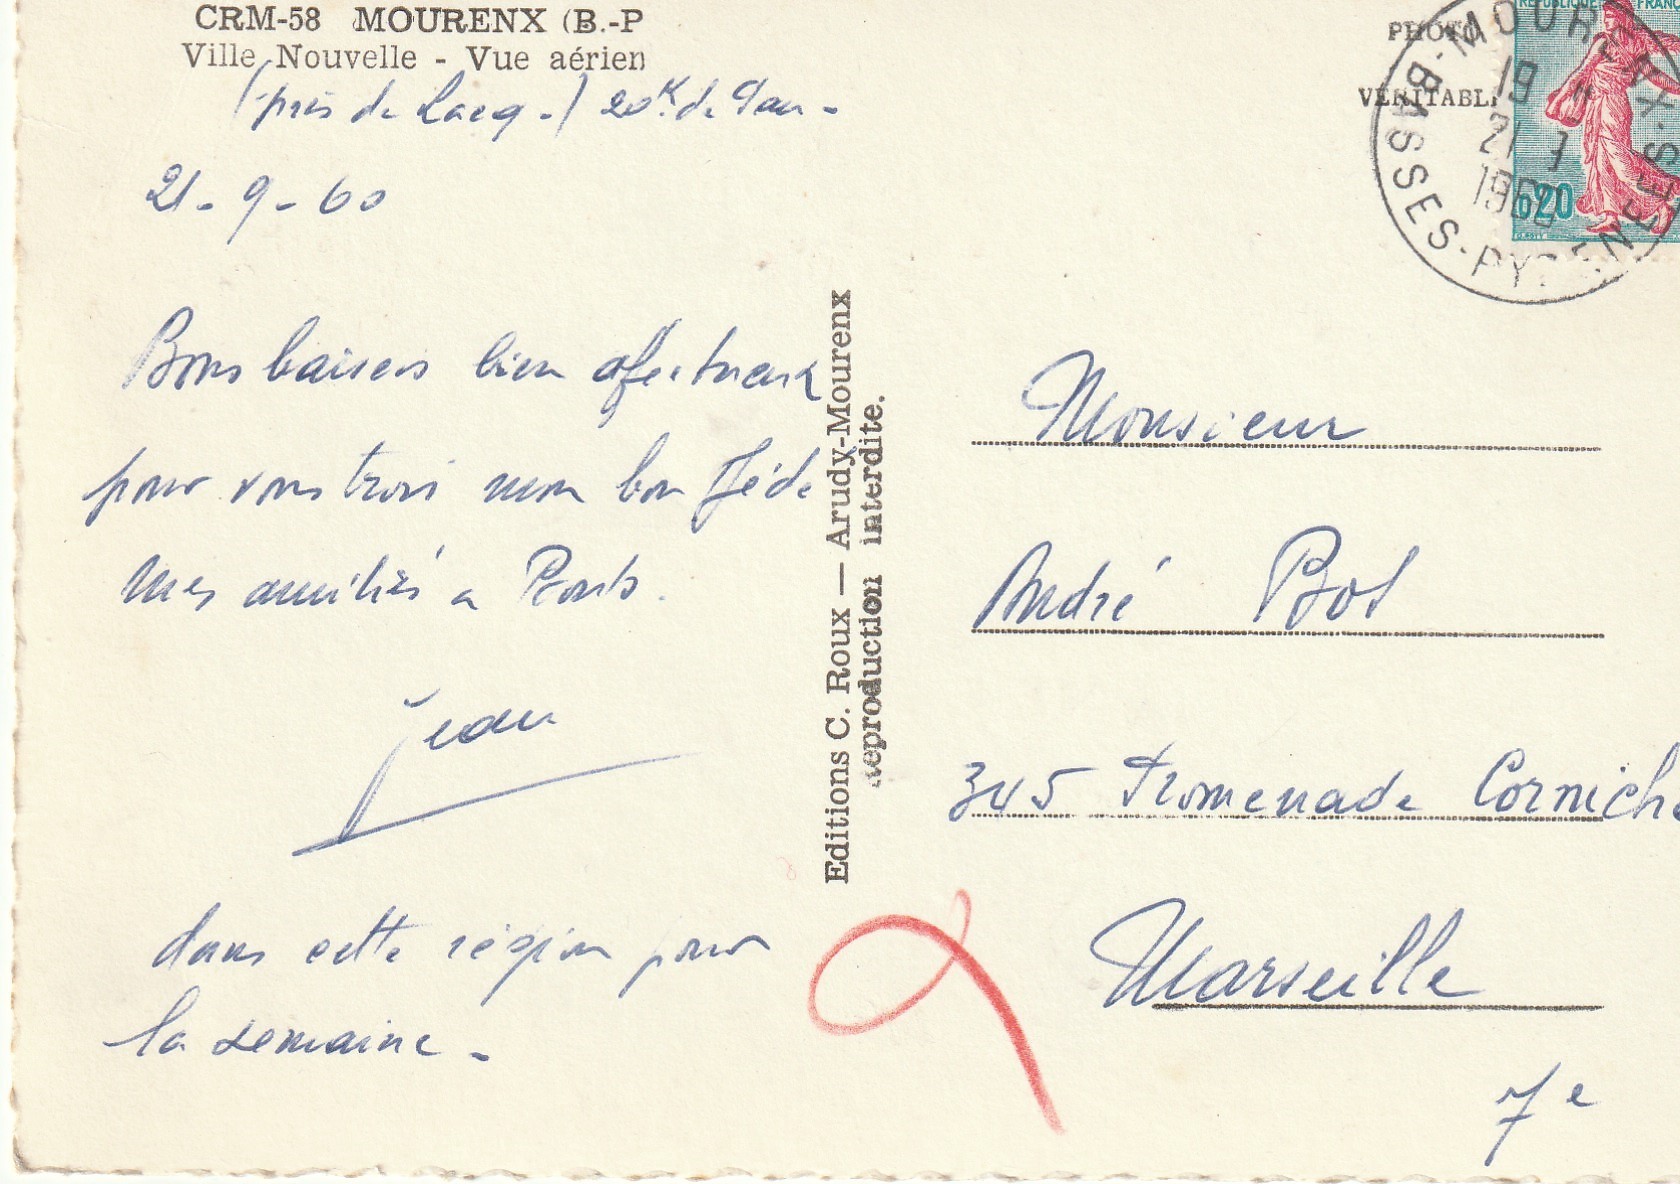 CRM-58 MOURENX (B.-P
Ville Nouvelle - Vue aérien
(près de Lacq -) 20K de Pau -
21 - 9 - 60
Bons baisers bien afectueux
pour vous trois mon bon Dédé
Mes amitiés a
Jean
dans cette région pour
la semaine -
Editions C. Roux — Arudy-Mourenx
Reproduction interdite.
PHOTO
VÉRITABL
MOURENX
B.-BASSES-PYRENEES
19
21
1960
0,20
Monsieur
André Bot
345 Promenade Corniche
Marseille
7e